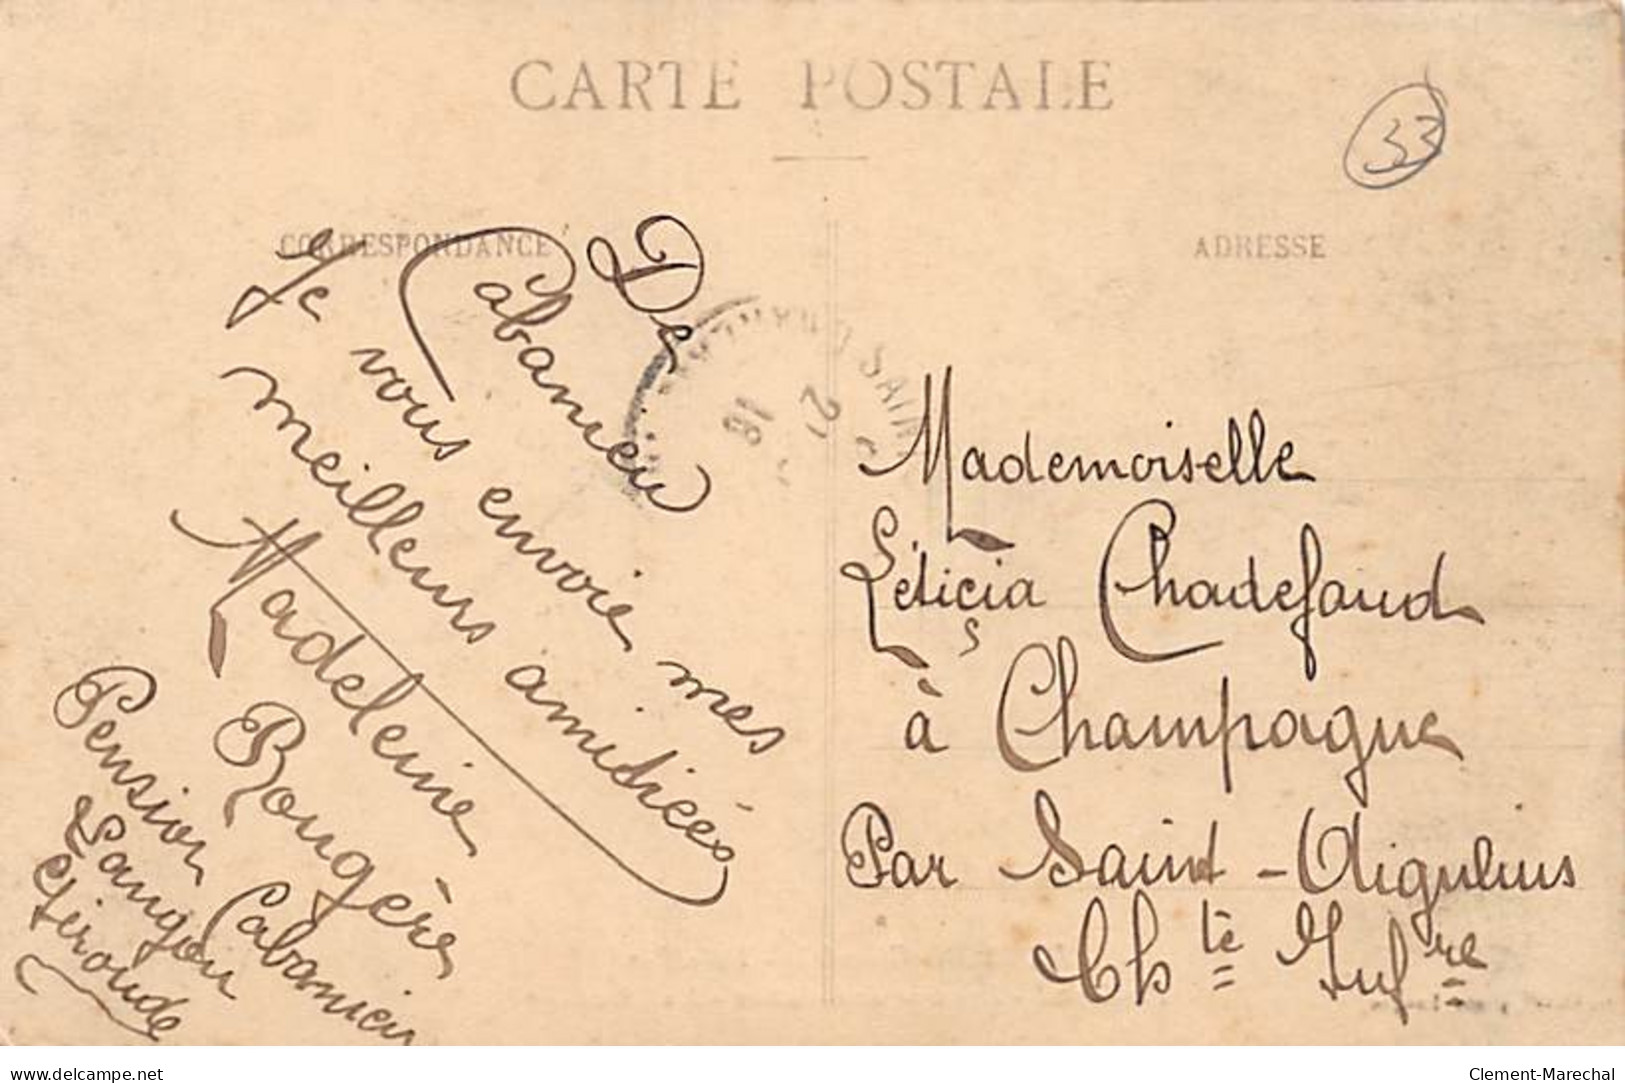 CARTE POSTALE
33
CORRESPONDANCE
ADRESSE
De
Cabanieu
Je vous envoie mes
meilleurs amitiées
Madeleine
Rougère
Pension Cabanieu
Langon
Gironde
SAIN
Mademoiselle
Léticia Chadefaud
à Champagne
Par Saint-Aigulins
Ch te Inf re
www.delcampe.net
Clement-Marechal